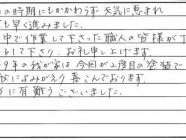 の時期にもかかわらず 天気に恵まれ
も早く進みました。
中で作業して下さった職人の皆様が丁
して下さり、お礼申し上げます。
9年の我が家は今回が2度目の塗装で
によみがえり喜こんでおります。
に有難うございました。